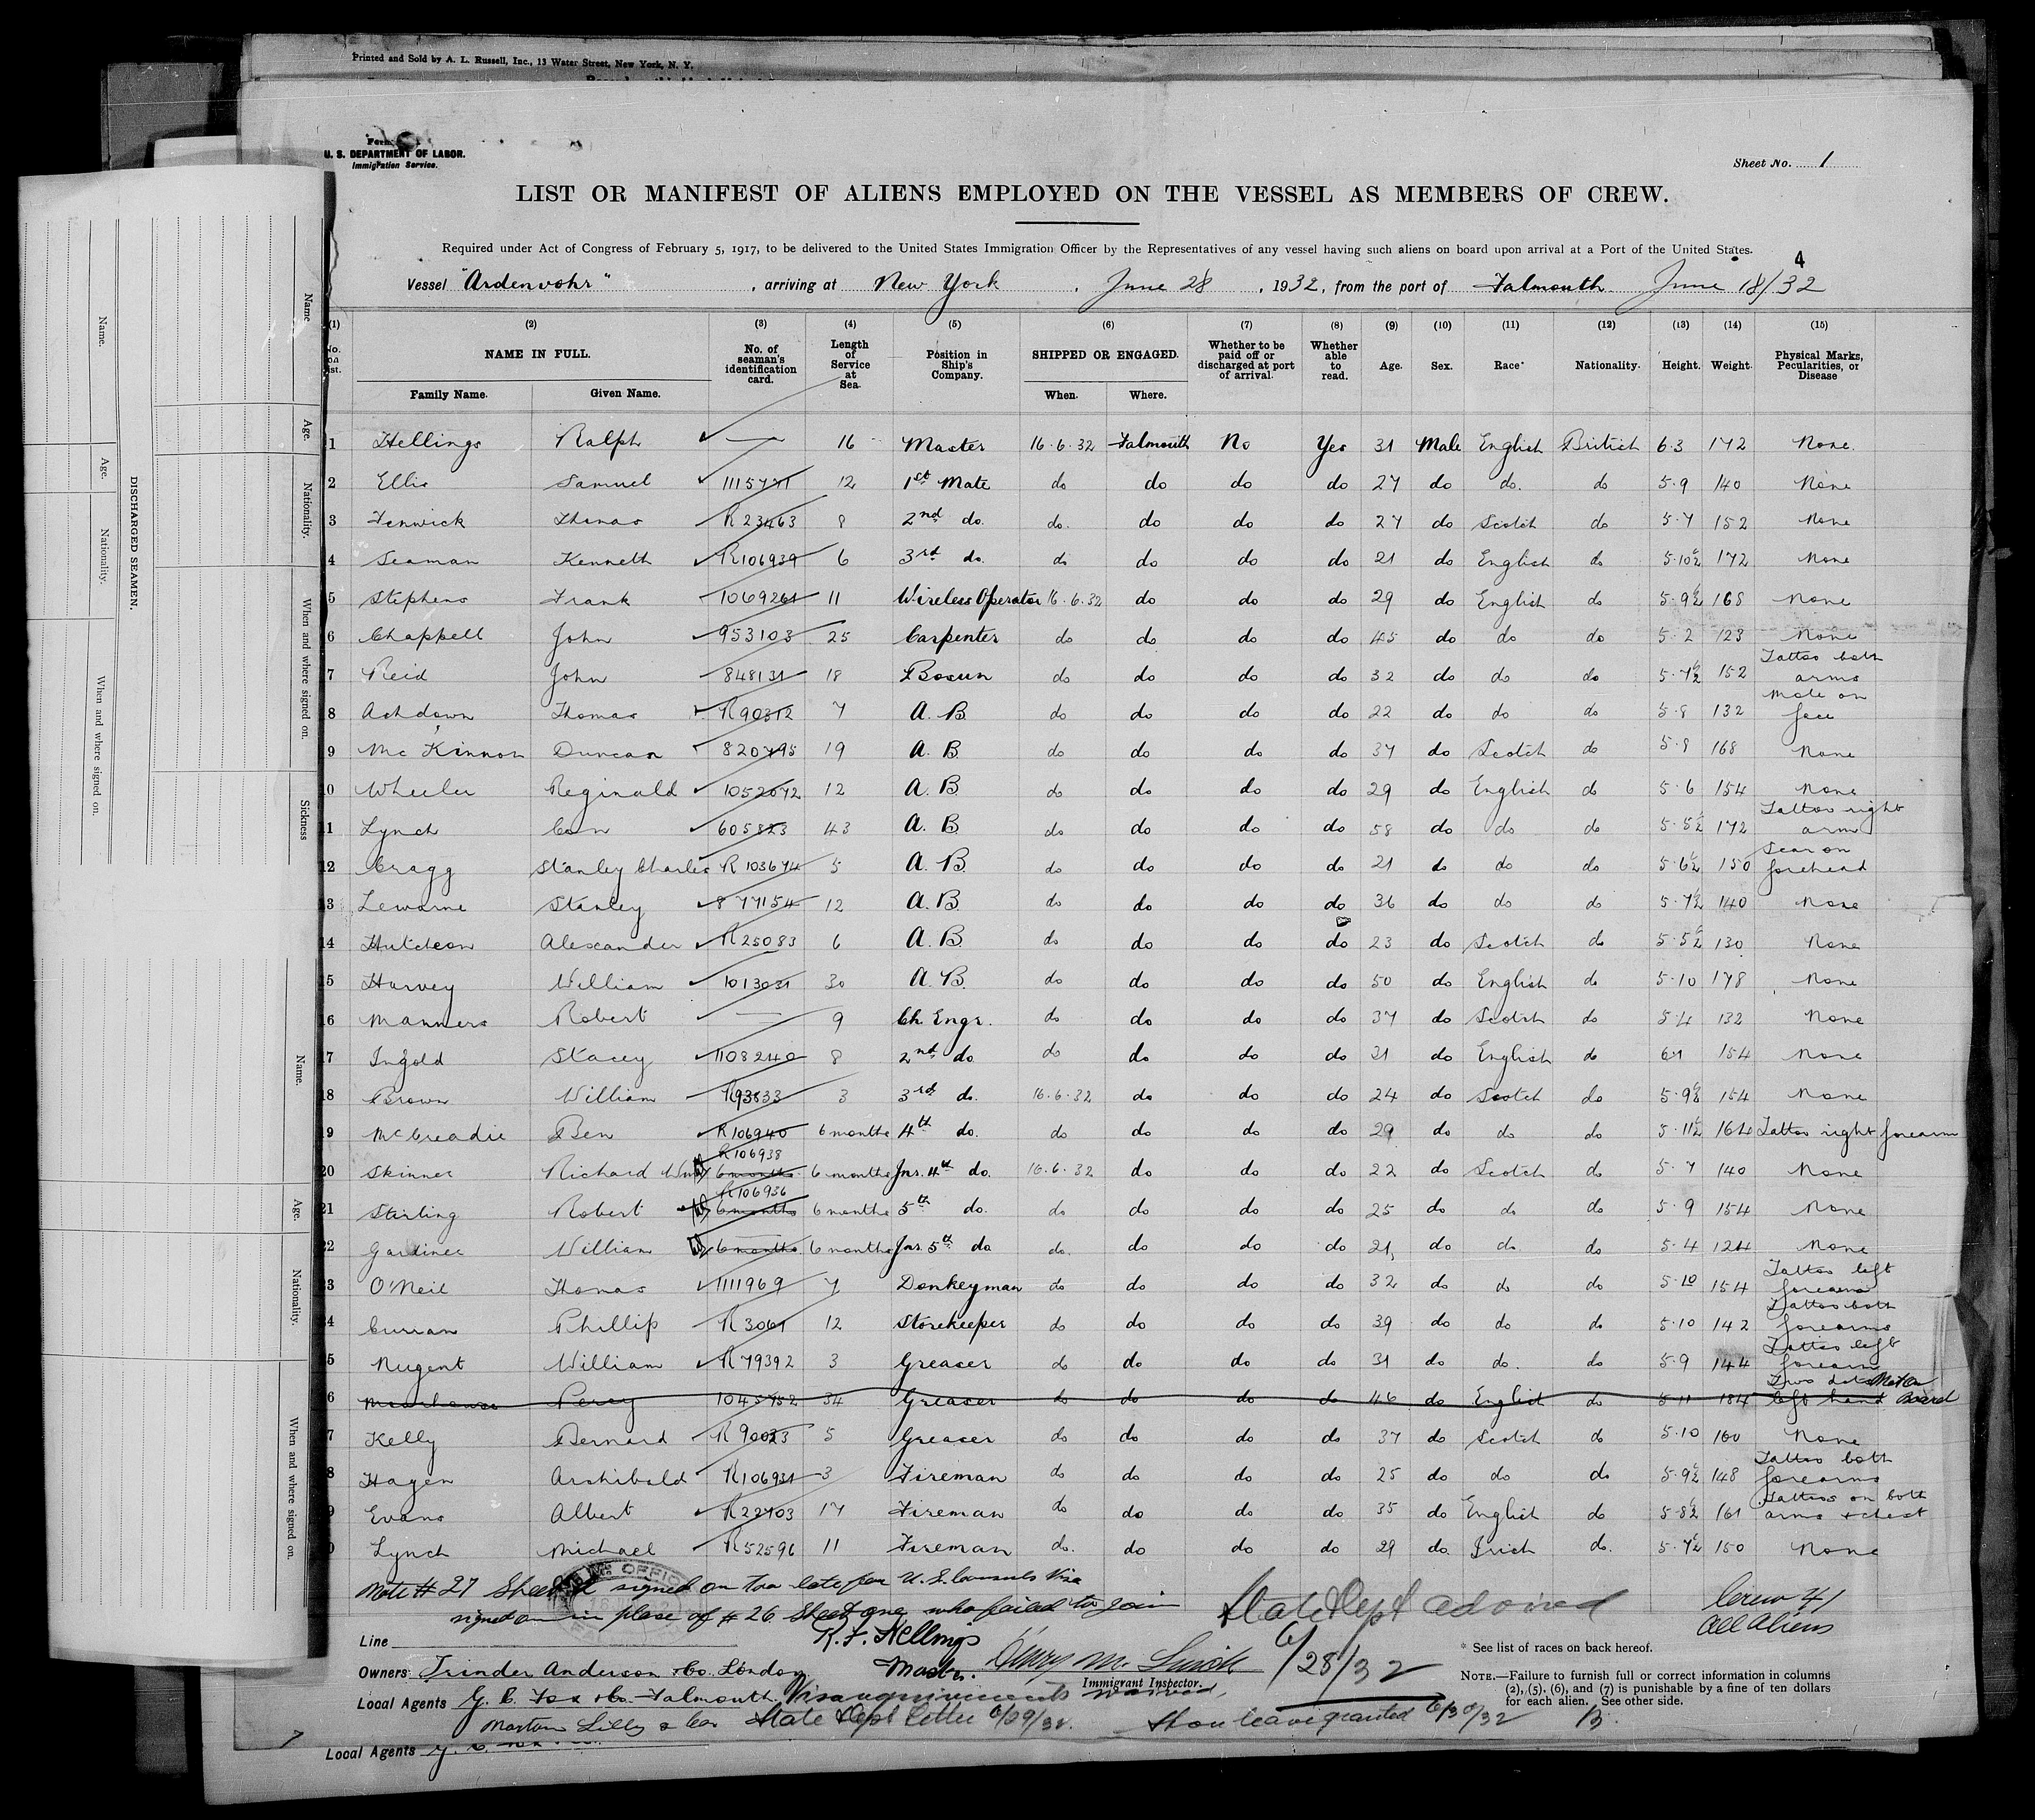 Printed and Sold by A. L. Russell, Inc., 13 Water Street, New York, N. Y.
Form
U. S. DEPARTMENT OF LABOR.
Immigration Service.
Sheet No. 1
LIST OR MANIFEST OF ALIENS EMPLOYED ON THE VESSEL AS MEMBERS OF CREW.
Required under Act of Congress of February 5, 1917, to be delivered to the United States Immigration Officer by the Representatives of any vessel having such aliens on board upon arrival at a Port of the United States.
4
Vessel "Ardenvohr", arriving at New York, June 28, 1932, from the port of Falmouth June 18/32
(1) (2) (3) (4) (5) (6) (7) (8) (9) (10) (11) (12) (13) (14) (15)
No. on list. NAME IN FULL. Family Name. Given Name. No. of seaman's identification card. Length of Service at Sea. Position in Ship's Company. SHIPPED OR ENGAGED. When. Where. Whether to be paid off or discharged at port of arrival. Whether able to read. Age. Sex. Race* Nationality. Height. Weight. Physical Marks, Pecularities, or Disease
1 Hellings Ralph — 16 Master 16.6.32 Falmouth No Yes 31 Male English British 6.3 172 None.
2 Ellis Samuel 1115771 12 1st Mate do do do do 27 do do. do 5.9 140 None
3 Fenwick Thomas R 23463 8 2nd do. do. do do do 27 do Scotch do 5.7 152 None
4 Seaman Kenneth R106939 6 3rd do. do do do do 21 do English do 5.10½ 172 None
5 Stephens Frank 1069261 11 Wireless Operator 16.6.32 do do do 29 do English do 5.9½ 168 None
6 Chappell John 953103 25 Carpenter do do do do 45 do do do 5.2 123 None
7 Reid John 848131 18 Bosun do do do do 32 do do do 5.7½ 152 Tattoo both arms
8 Ashdown Thomas R90312 7 A.B. do do do do 22 do do do 5.8 132 Mole on face
9 McKinnon Duncan 820795 19 A.B. do do do do 37 do Scotch do 5.8 168 None
10 Wheeler Reginald 1052072 12 A.B. do do do do 29 do English do 5.6 154 None
11 Lynch Con 605823 43 A.B. do do do do 58 do do do 5.5½ 172 Tattoo right arm
12 Cragg Stanley Charles R 103674 5 A.B. do do do do 21 do do do 5.6½ 150 Scar on forehead
13 Lewarne Stanley 877154 12 A.B. do do do do 36 do do do 5.7½ 140 None
14 Hutcheon Alexander R25083 6 A.B. do do do do 23 do Scotch do 5.5½ 130 None
15 Harvey William 1013031 30 A.B. do do do do 50 do English do 5.10 178 None
16 Manners Robert — 9 Ch. Engr. do do do do 37 do Scotch do 5.4 132 None
17 Ingold Stacey 1108240 8 2nd do. do do do do 31 do English do 6.1 154 None
18 Brown William R93833 3 3rd do. 16.6.32 do do do 24 do Scotch do 5.9½ 154 None
19 McCreadie Ben R106940 6 months 4th do. do do do do 29 do do do 5.11½ 164 Tattoo right forearm
20 Skinner Richard R106938 6 months 6 months Jnr. 4th do. 16.6.32 do do do 22 do Scotch do 5.7 140 None
21 Stirling Robert R106936 6 months 6 months 5th do. do do do do 25 do do do 5.9 154 None
22 Gardiner William 6 months 6 months Jnr. 5th do do. do do do 21 do do do 5.4 124 None
3 O'Neil Thomas 1111969 7 Donkeyman do do do do 32 do do do 5.10 154 Tattoo left forearm
4 Curran Phillip R 3061 12 Storekeeper do do do do 39 do do do 5.10 142 Tattoo both forearms
5 Nugent William R79392 3 Greaser do do do do 31 do do. do 5.9 144 Tattoo left forearm
6 Percy 1045752 34 Greaser do do do do 46 do English do 5.11 184 Two dots left hand Not on Board
7 Kelly Bernard R 90023 5 Greaser do do do do 37 do Scotch do 5.10 160 None
8 Hagen Archibald R106931 3 Fireman do do do do 25 do do do 5.9½ 148 Tattoo both forearms
9 Evans Albert R22703 17 Fireman do do do do 35 do English do 5.8½ 161 Tattoos on both arms + chest
0 Lynch Michael R52596 11 Fireman do. do do do 29 do. Irish do. 5.7½ 150 None
Note # 27 Sheet 2 signed on too late for U.S. Consuls Visa
signed on in place of # 26 Sheet one who failed to join
State Dept advised
6/28/32
Crew 41
All Aliens
Line
R. F. Hellings
Master.
Immigrant Inspector.
* See list of races on back hereof.
Owners Trinder Anderson & Co. London
NOTE.—Failure to furnish full or correct information in columns (2), (5), (6), and (7) is punishable by a fine of ten dollars for each alien. See other side.
Local Agents G. C. Fox & Co. Falmouth. Visa requirements waived,
State Dept Letter 6/29/32. Shore leave granted 6/30/32 B.
Local Agents
DISCHARGED SEAMEN.
Name. Age. Nationality. When and where signed on.
Name Age. Nationality. When and where signed on. Sickness
Name. Age. Nationality. When and where signed on.